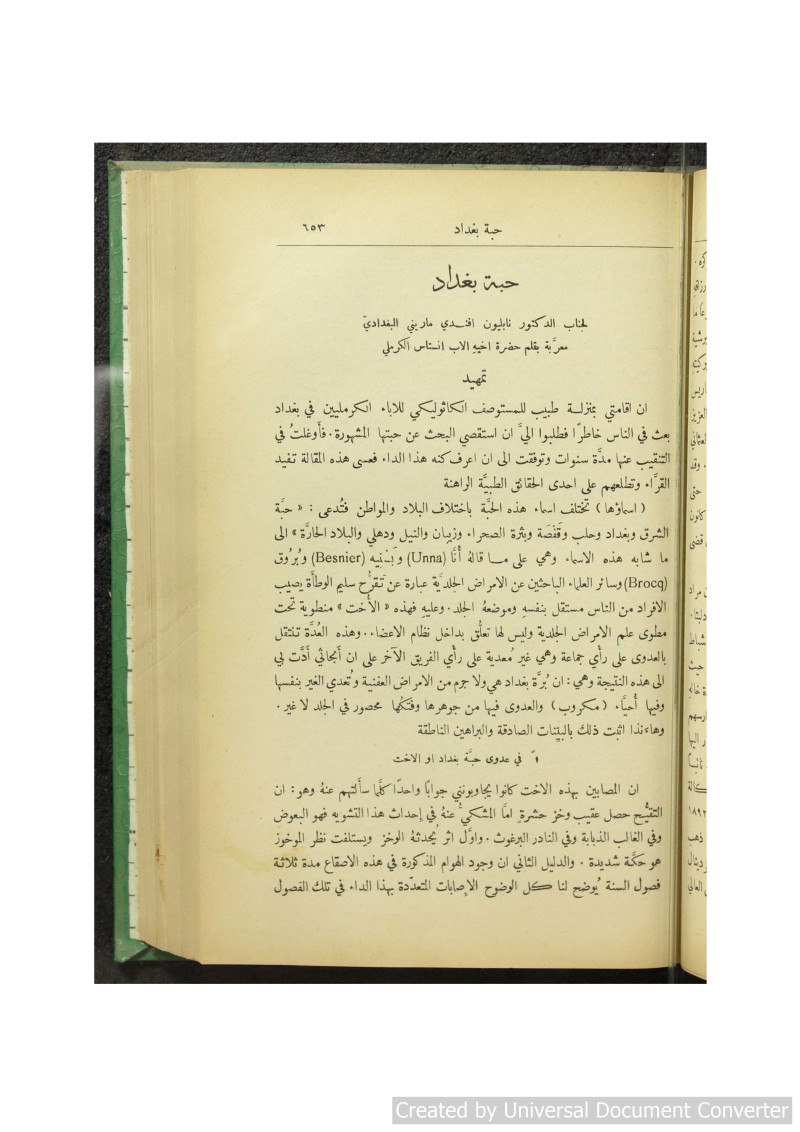 حبة بغداد
٦٥٣
حبة بغداد
لجناب الدكتور نابليون افندي ماريني البغداديّ
معرَّبة بقلم حضرة اخيهِ الاب انستاس الكرملي
تمهيد
ان اقامتي بمنزلة طبيب للمستوصف الكاثوليكي للاباء الكرمليين في بغداد
بعث في الناس خاطرًا فطلبوا اليَّ ان استقصي البحث عن حبتها المشهورة. فأوغلتُ في
التنقيب عنها مدَّة سنوات وتوفقت الى ان اعرف كنه هذا الداء فعسى هذه المقالة تفيد
القرَّاء وتطلعهم على احدى الحقائق الطبيَّة الراهنة
(اسماؤها) تختلف اسماء هذه الحبَّة باختلاف البلاد والمواطن فتُدعى: «حبَّة
الشرق وبغداد وحلب وقَفْصَة وبثرة الصحراء وزيبان والنيل ودهلي والبلاد الحارَّة» الى
ما شابه هذه الاسماء وهي على ما قالهُ أُنَّا (Unna) وبَسْنِيه (Besnier) وبُرُوق
(Brocq) وسائر العلماء الباحثين عن الامراض الجلديَّة عبارة عن تقرُّح سليم الوطأة يصيب
الافراد من الناس مستقل بنفسهِ وموضعهُ الجلد. وعليهِ فهذه «الأُخت» منطوية تحت
مطوى علم الامراض الجلدية وليس لها تعلُّق بداخل نظام الاعضاء. وهذه الغُدَّة تنتقل
بالعدوى على رأي جماعة وهي غير مُعدية على رأي الفريق الآخر على ان أبحاثي أَدَّت بي
الى هذه النتيجة وهي: ان بُرَّة بغداد هي ولا جرم من الامراض العفنية وتُعدي الغير بنفسها
وفيها أُحيَّاء (مكروب) والعدوى فيها من جوهرها وفتكُها محصور في الجلد لا غير.
وهاءنذا اثبت ذلك بالبيّنات الصادقة والبراهين الناطقة
١ً في عدوى حبَّة بغداد او الاخت
ان المصابين بهذه الاخت كانوا يجاوبونني جوابًا واحدًا كلَّما سألتهم عنهُ وهو: ان
التقيُّح حصل عقيب وخز حشرةٍ امَّا المشكيّ عنهُ في إحداث هذا التشويه فهو البعوض
وفي الغالب الذبابة وفي النادر البرغوث. واوَّل اثر يُحدثهُ الوخز ويستلفت نظر الموخوز
هو حكَّة شديدة. والدليل الثاني ان وجود الهوام المذكورة في هذه الاصقاع مدة ثلاثة
فصول السنة يُوضح لنا كل الوضوح الإصابات المتعدّدة بهذا الداء في تلك الفصول
Created by Universal Document Converter